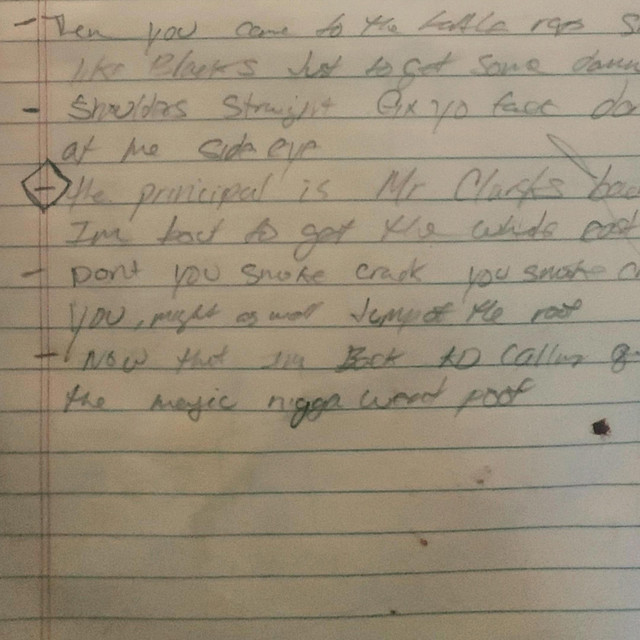 - Then you come to the battle raps
like Blacks Just to get some damn
- Shoulders straight fix yo face
at me side eye
- the principal is Mr Clarks
I'm bout to get the whole
- Dont you smoke crack you smoke
you, might as well Jump of the roof
- Now that Im Back to Calling
the magic nigga went poof